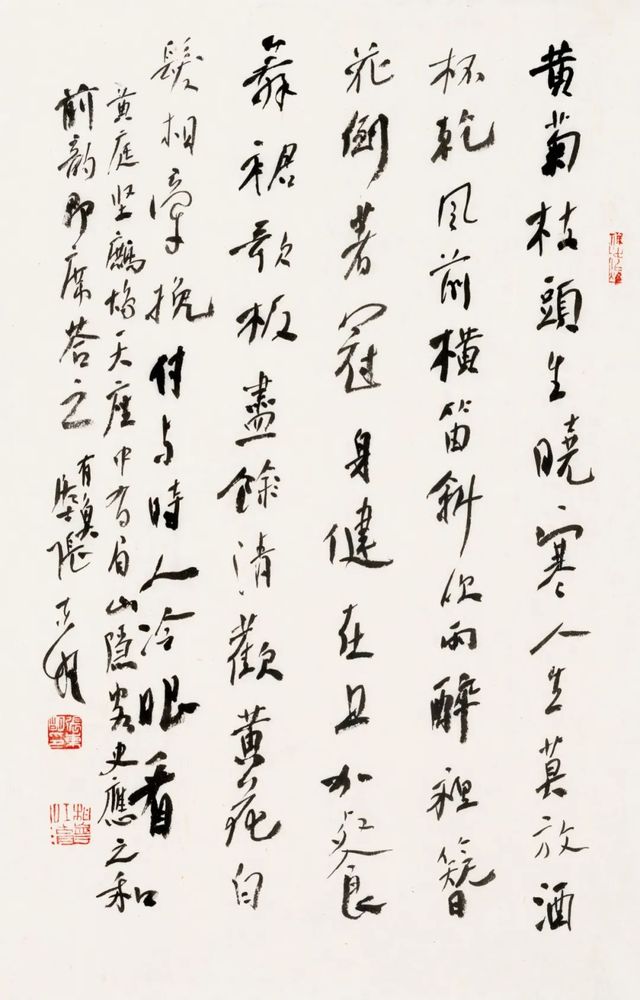 黄菊枝頭生曉寒人生莫放酒
杯乾風前橫笛斜吹雨醉裡簪
花倒著冠身健在且加餐
舞裙歌板盡餘清歡黄花白
髮相牽挽付与時人冷眼看
黄庭坚鷓鴣天座中有眉山隱客史應之和
前韵即席答之